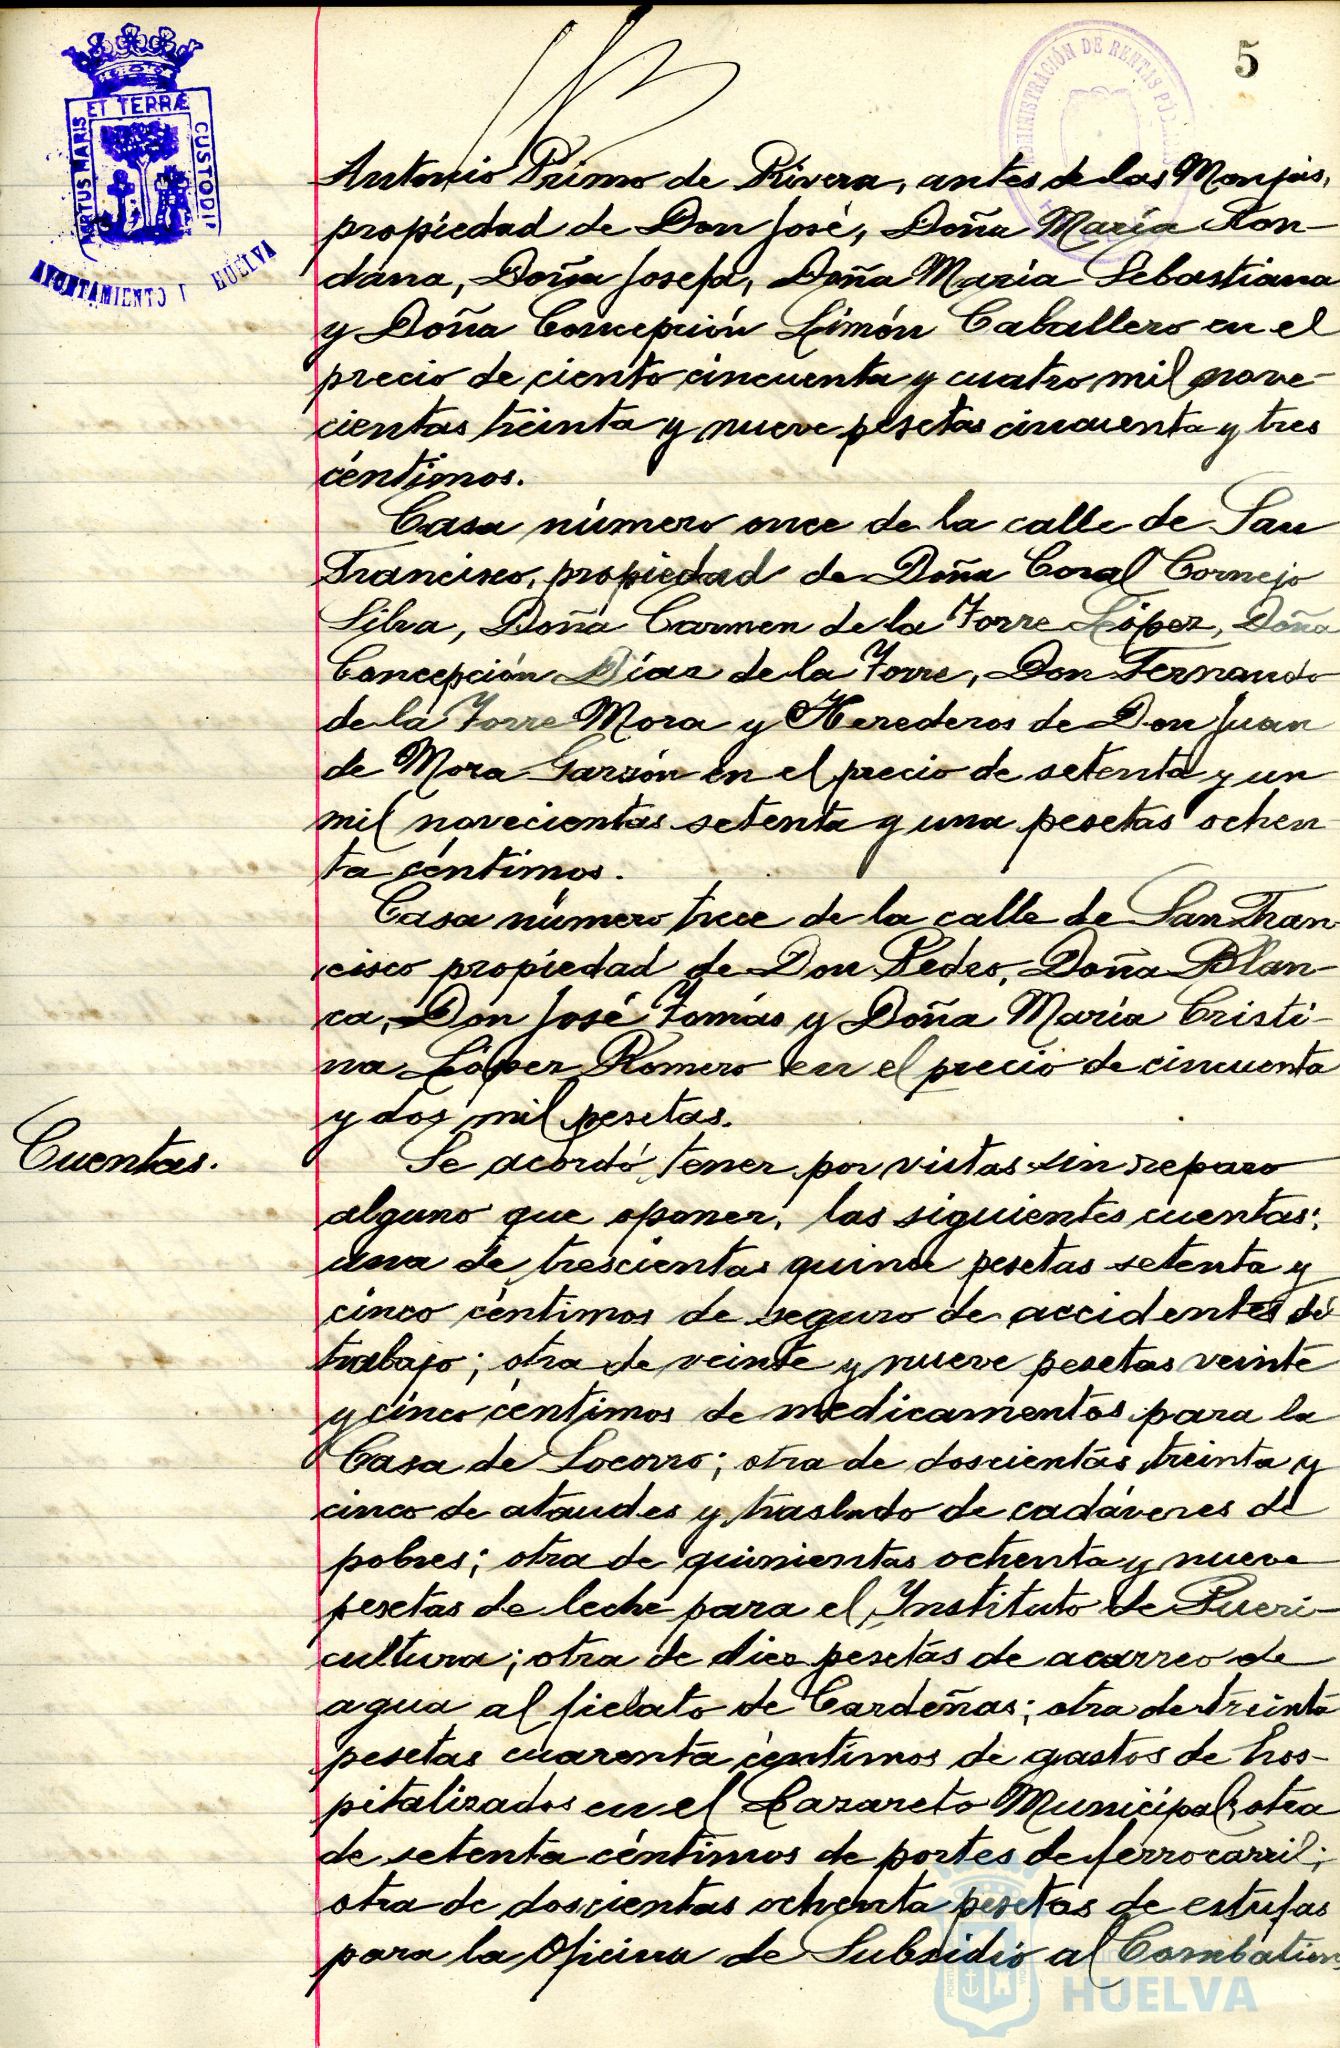 5
PORTUS MARIS ET TERRÆ CUSTODIA
AYUNTAMIENTO HUELVA
ADMINISTRACIÓN DE RENTAS
Antonio Primo de Rivera, antes de las Monjas,
propiedad de Don José, Doña María Ron-
dana, Doña Josefa, Doña María Sebastiana
y Doña Concepción Limón Caballero en el
precio de ciento cincuenta y cuatro mil nove-
cientas treinta y nueve pesetas cincuenta y tres
céntimos.
Casa número once de la calle de San
Francisco, propiedad de Doña Coral Cornejo
Silva, Doña Carmen de la Torre López, Doña
Concepción Díaz de la Torre, Don Fernando
de la Torre Mora y Herederos de Don Juan
de Mora Garzón en el precio de setenta y un
mil novecientas setenta y una pesetas ochen-
ta céntimos.
Casa número trece de la calle de San Fran-
cisco propiedad de Don Pedro, Doña Blan-
ca, Don José Tomás y Doña María Cristi-
na López Romero en el precio de cincuenta
y dos mil pesetas.
Cuentas.
Se acordó tener por vistas sin reparo
alguno que oponer, las siguientes cuentas:
una de trescientas quince pesetas setenta y
cinco céntimos de seguro de accidentes de
trabajo; otra de veinte y nueve pesetas veinte
y cinco céntimos de medicamentos para la
Casa de Socorro; otra de doscientas treinta y
cinco de ataudes y traslado de cadáveres de
pobres; otra de quinientas ochenta y nueve
pesetas de leche para el Instituto de Pueri-
cultura; otra de diez pesetas de acarreo de
agua al fielato de Cardeñas; otra de treinta
pesetas cuarenta céntimos de gastos de hos-
pitalizados en el Lazareto Municipal; otra
de setenta céntimos de portes de ferrocarril;
otra de doscientas ochenta pesetas de estufas
para la Oficina de Subsidio al Combatien-
HUELVA